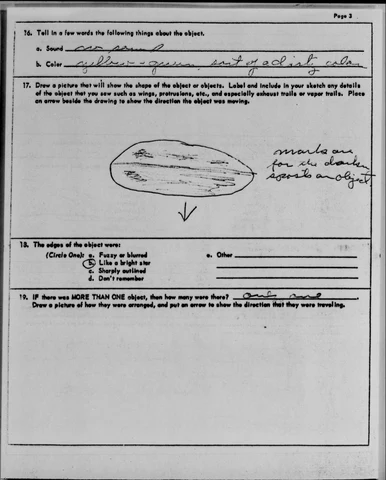 Page 3
16. Tell in a few words the following things about the object.
a. Sound no sound
b. Color yellow - green sort of a dirty color
17. Draw a picture that will show the shape of the object or objects. Label and include in your sketch any details
of the object that you saw such as wings, protrusions, etc., and especially exhaust trails or vapor trails. Place
an arrow beside the drawing to show the direction the object was moving.
marks are
for the darker
spots on object.
18. The edges of the object were:
(Circle One): a. Fuzzy or blurred
b. Like a bright star
c. Sharply outlined
d. Don't remember
e. Other
19. IF there was MORE THAN ONE object, then how many were there? one
Draw a picture of how they were arranged, and put an arrow to show the direction that they were traveling.